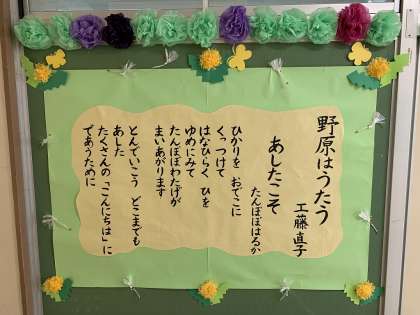 野原はうたう
工藤直子
あしたこそ
たんぽぽはるか
ひかりを おでこに
くっつけて
はなひらく ひを
ゆめにみて
たんぽぽわたげが
まいあがります
とんでいこう どこまでも
あした
たくさんの「こんにちは」に
であうために